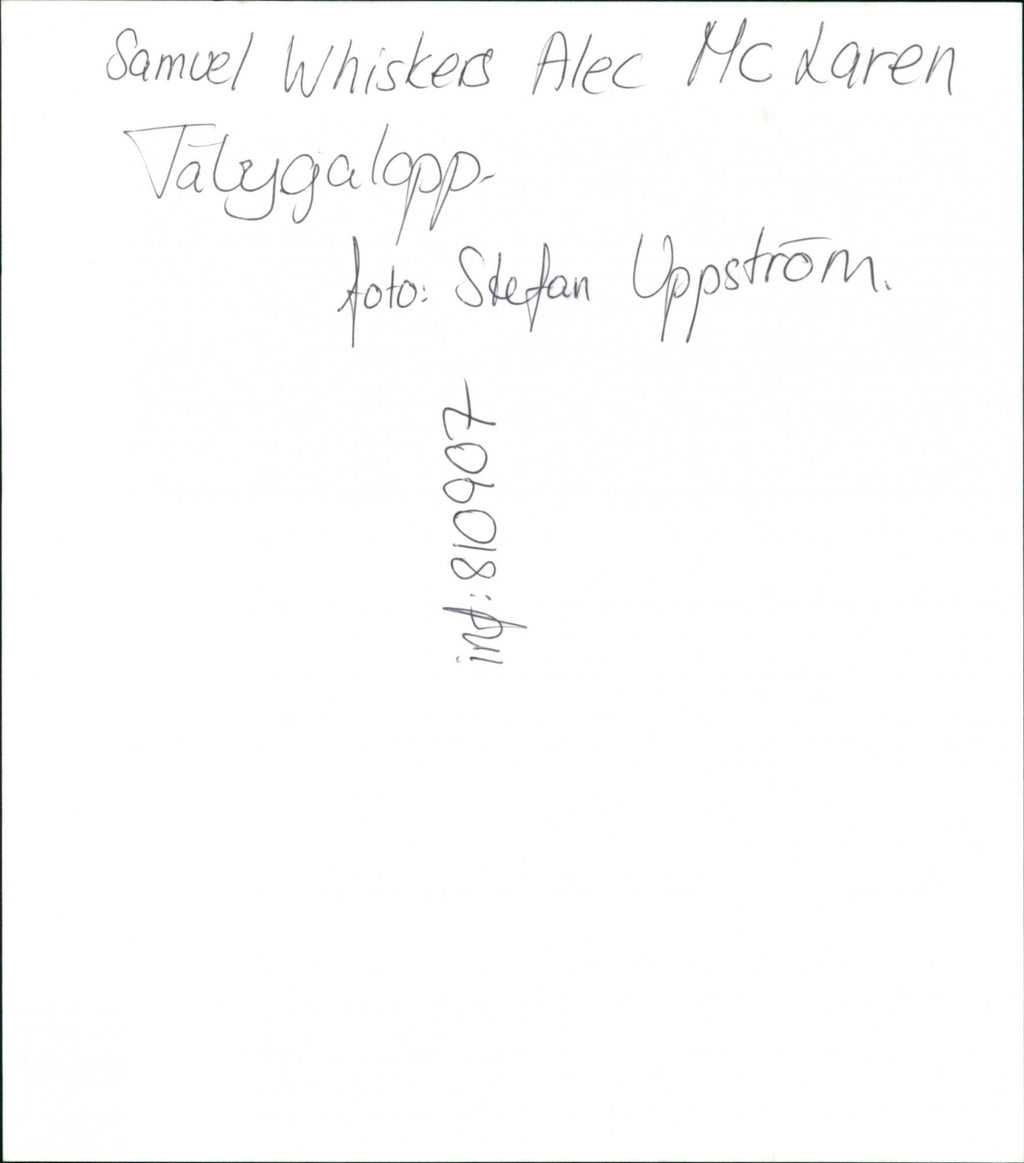 Samuel Whiskers Alec Mc Laren
Täbygalopp.
foto: Stefan Uppström.
inq: 810907